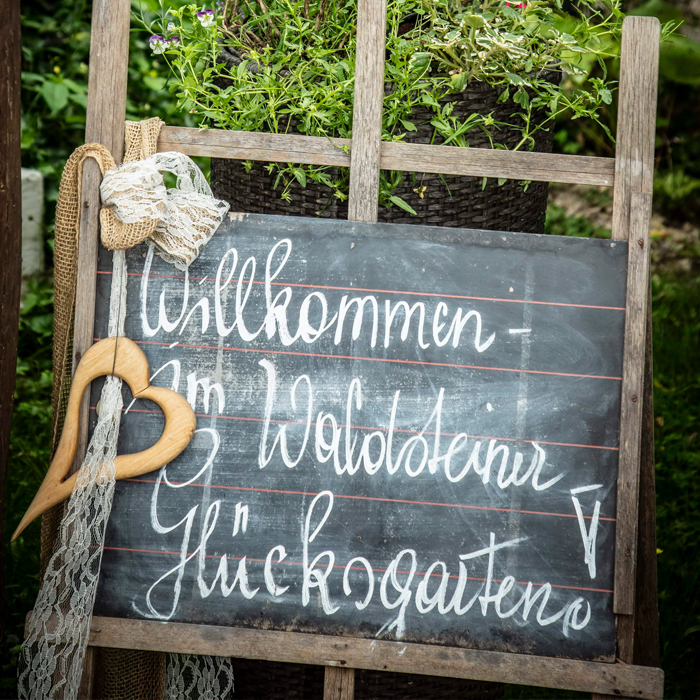 Willkommen -
im Waldsteiner
Glücksgarten!